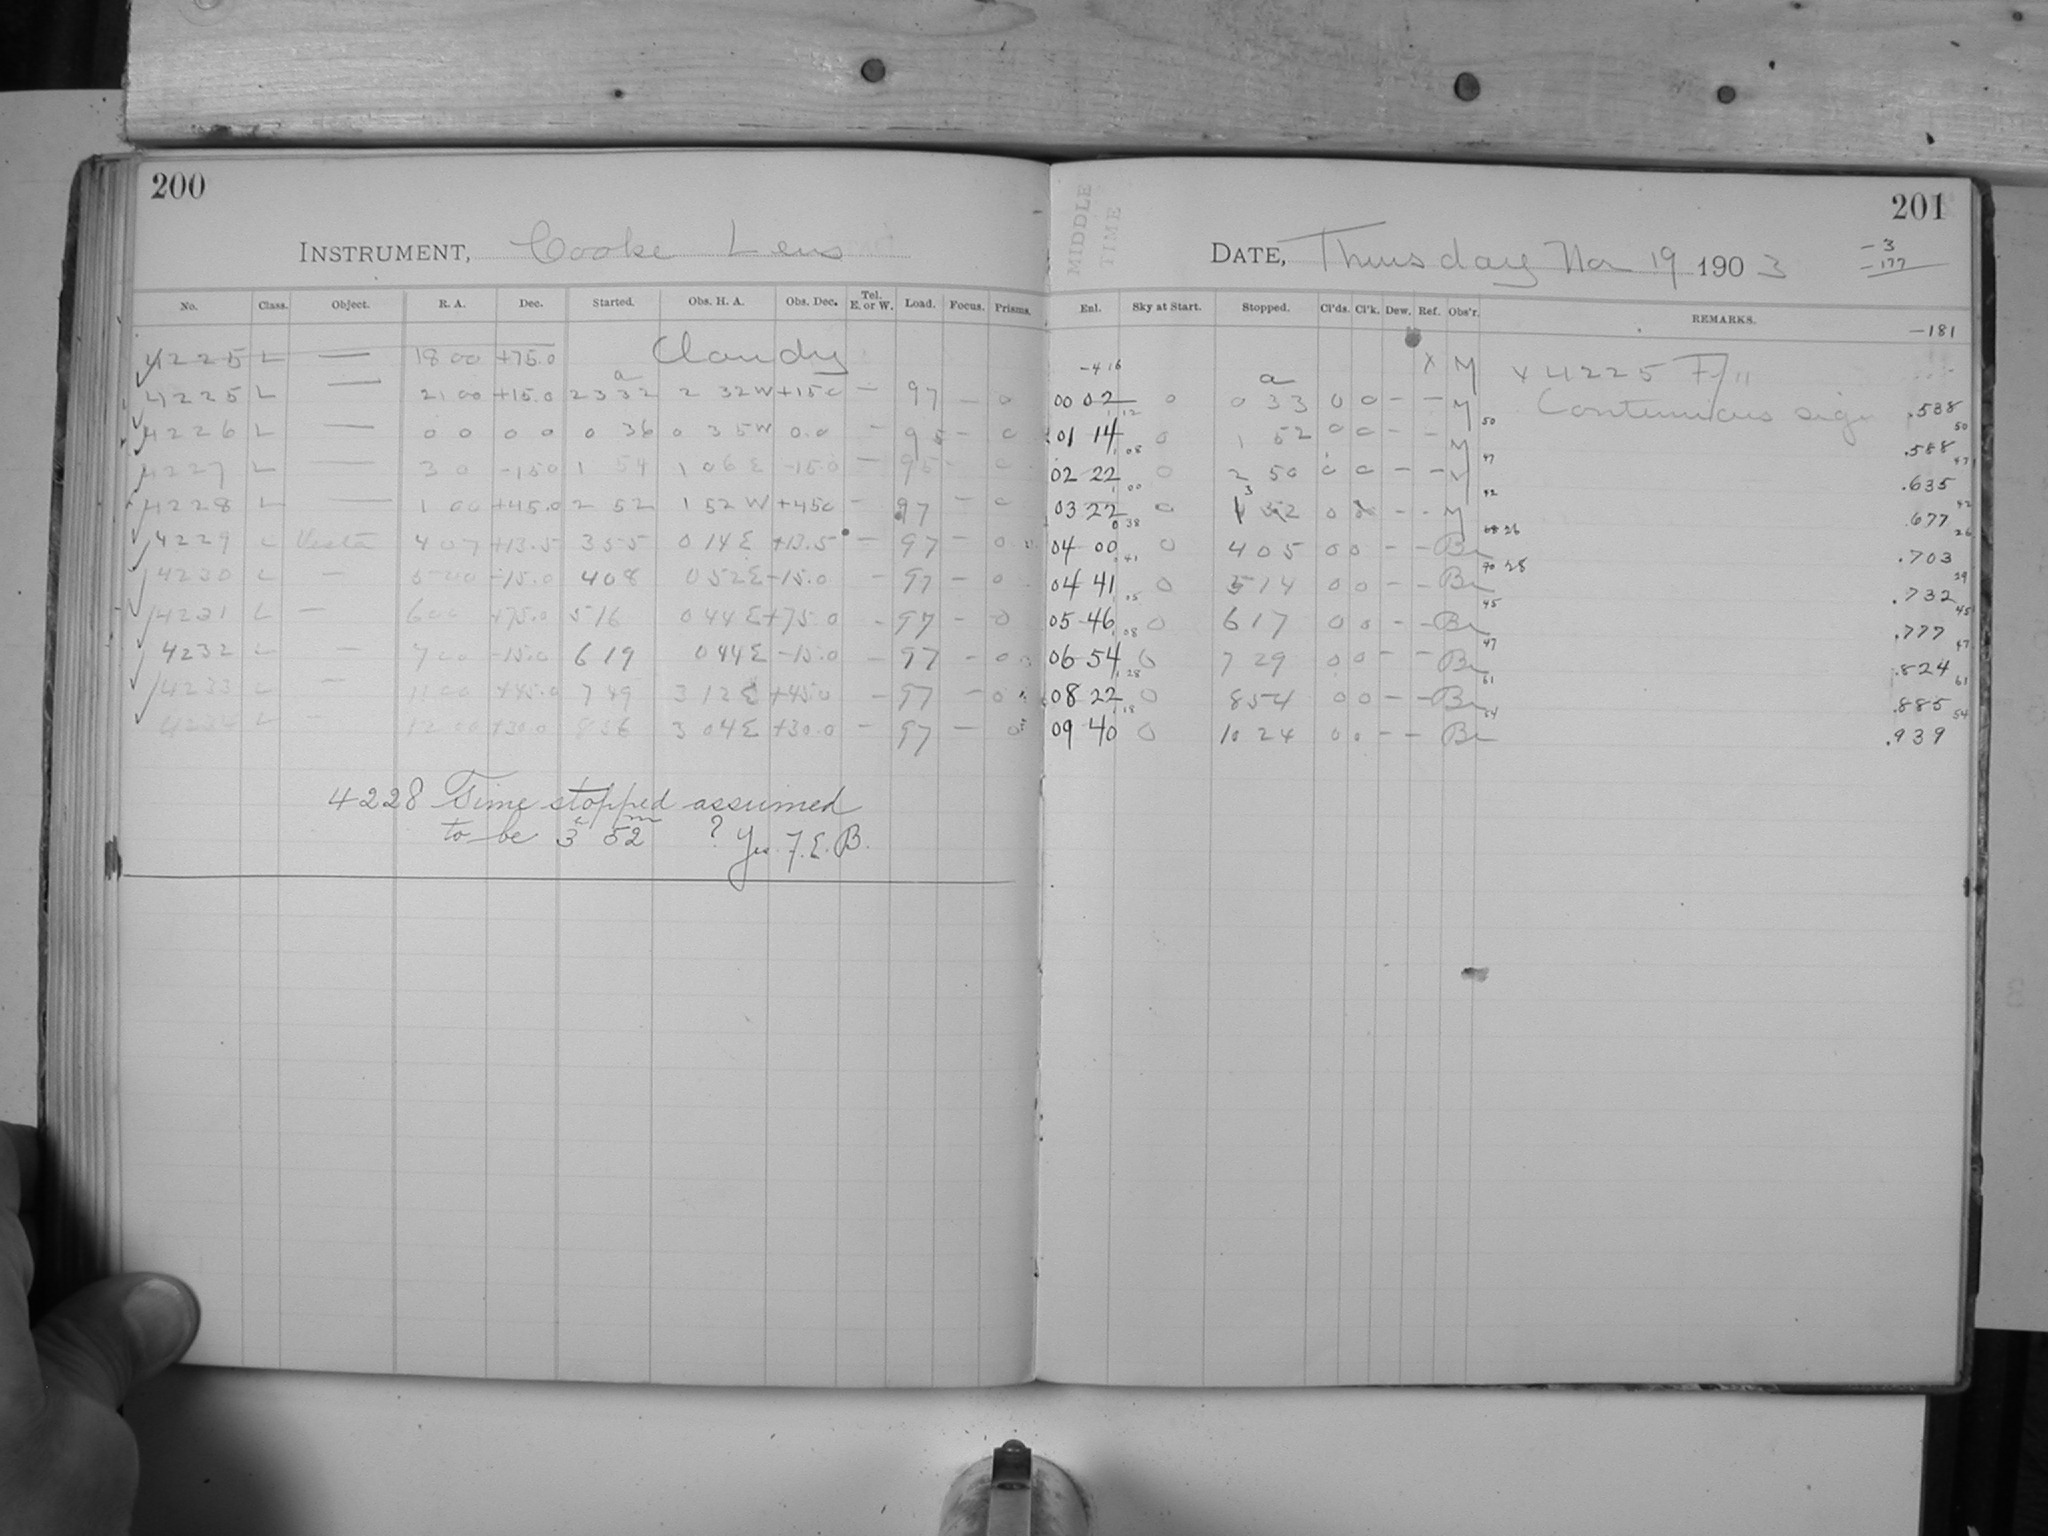 200
INSTRUMENT, Cooke Lens
No. Class. Object. R. A. Dec. Started. Obs. H. A. Obs. Dec. Tel. E. or W. Load. Focus. Prisms.
4225 L — 18 00 +75.0 Cloudy
4225 L — 21 00 +15.0 23 32 2 32 W +15.0 — 97 — 0
4226 L — 0 0 0 0 0 36 0 35 W 0.0 — 95 — 0
4227 L — 3 0 -15.0 1 54 1 06 E -15.0 — 95 — 0
4228 L — 1 00 +45.0 2 52 1 52 W +45.0 — 97 — 0
4229 L Vesta 4 07 +13.5 3 55 0 14 E +13.5 — 97 — 0
4230 L — 5 00 -15.0 4 08 0 52 E -15.0 — 97 — 0
4231 L — 6 00 +75.0 5 16 0 44 E +75.0 — 97 — 0
4232 L — 7 00 -15.0 6 19 0 44 E -15.0 — 97 — 0
4233 L — 11 00 +45.0 7 49 3 12 E +45.0 — 97 — 0
4234 L — 12 00 +30.0 8 56 3 04 E +30.0 — 97 — 0
4228 Time stopped assumed
to be 3h 52m ? Yes. F.E.B.
201
MIDDLE
TIME
DATE, Thursday Nov 19 1903
-3
-177
-181
Enl. Sky at Start. Stopped. Cl'ds. Cl'k. Dew. Ref. Obs'r. REMARKS.
-416 x M x 4225 F/11
00 02 0 0 33 0 0 — — M Continuous sign .538
01 14 0 1 52 0 0 — — M .588
02 22 0 2 50 0 0 — — M .635
03 22 0 3 52 0 — — M .677
04 00 0 4 05 0 0 — — Br .703
04 41 0 5 14 0 0 — — Br .732
05 46 0 6 17 0 0 — — Br .777
06 54 0 7 29 0 0 — — Br .824
08 22 0 8 54 0 0 — — Br .885
09 40 0 10 24 0 0 — — Br .939